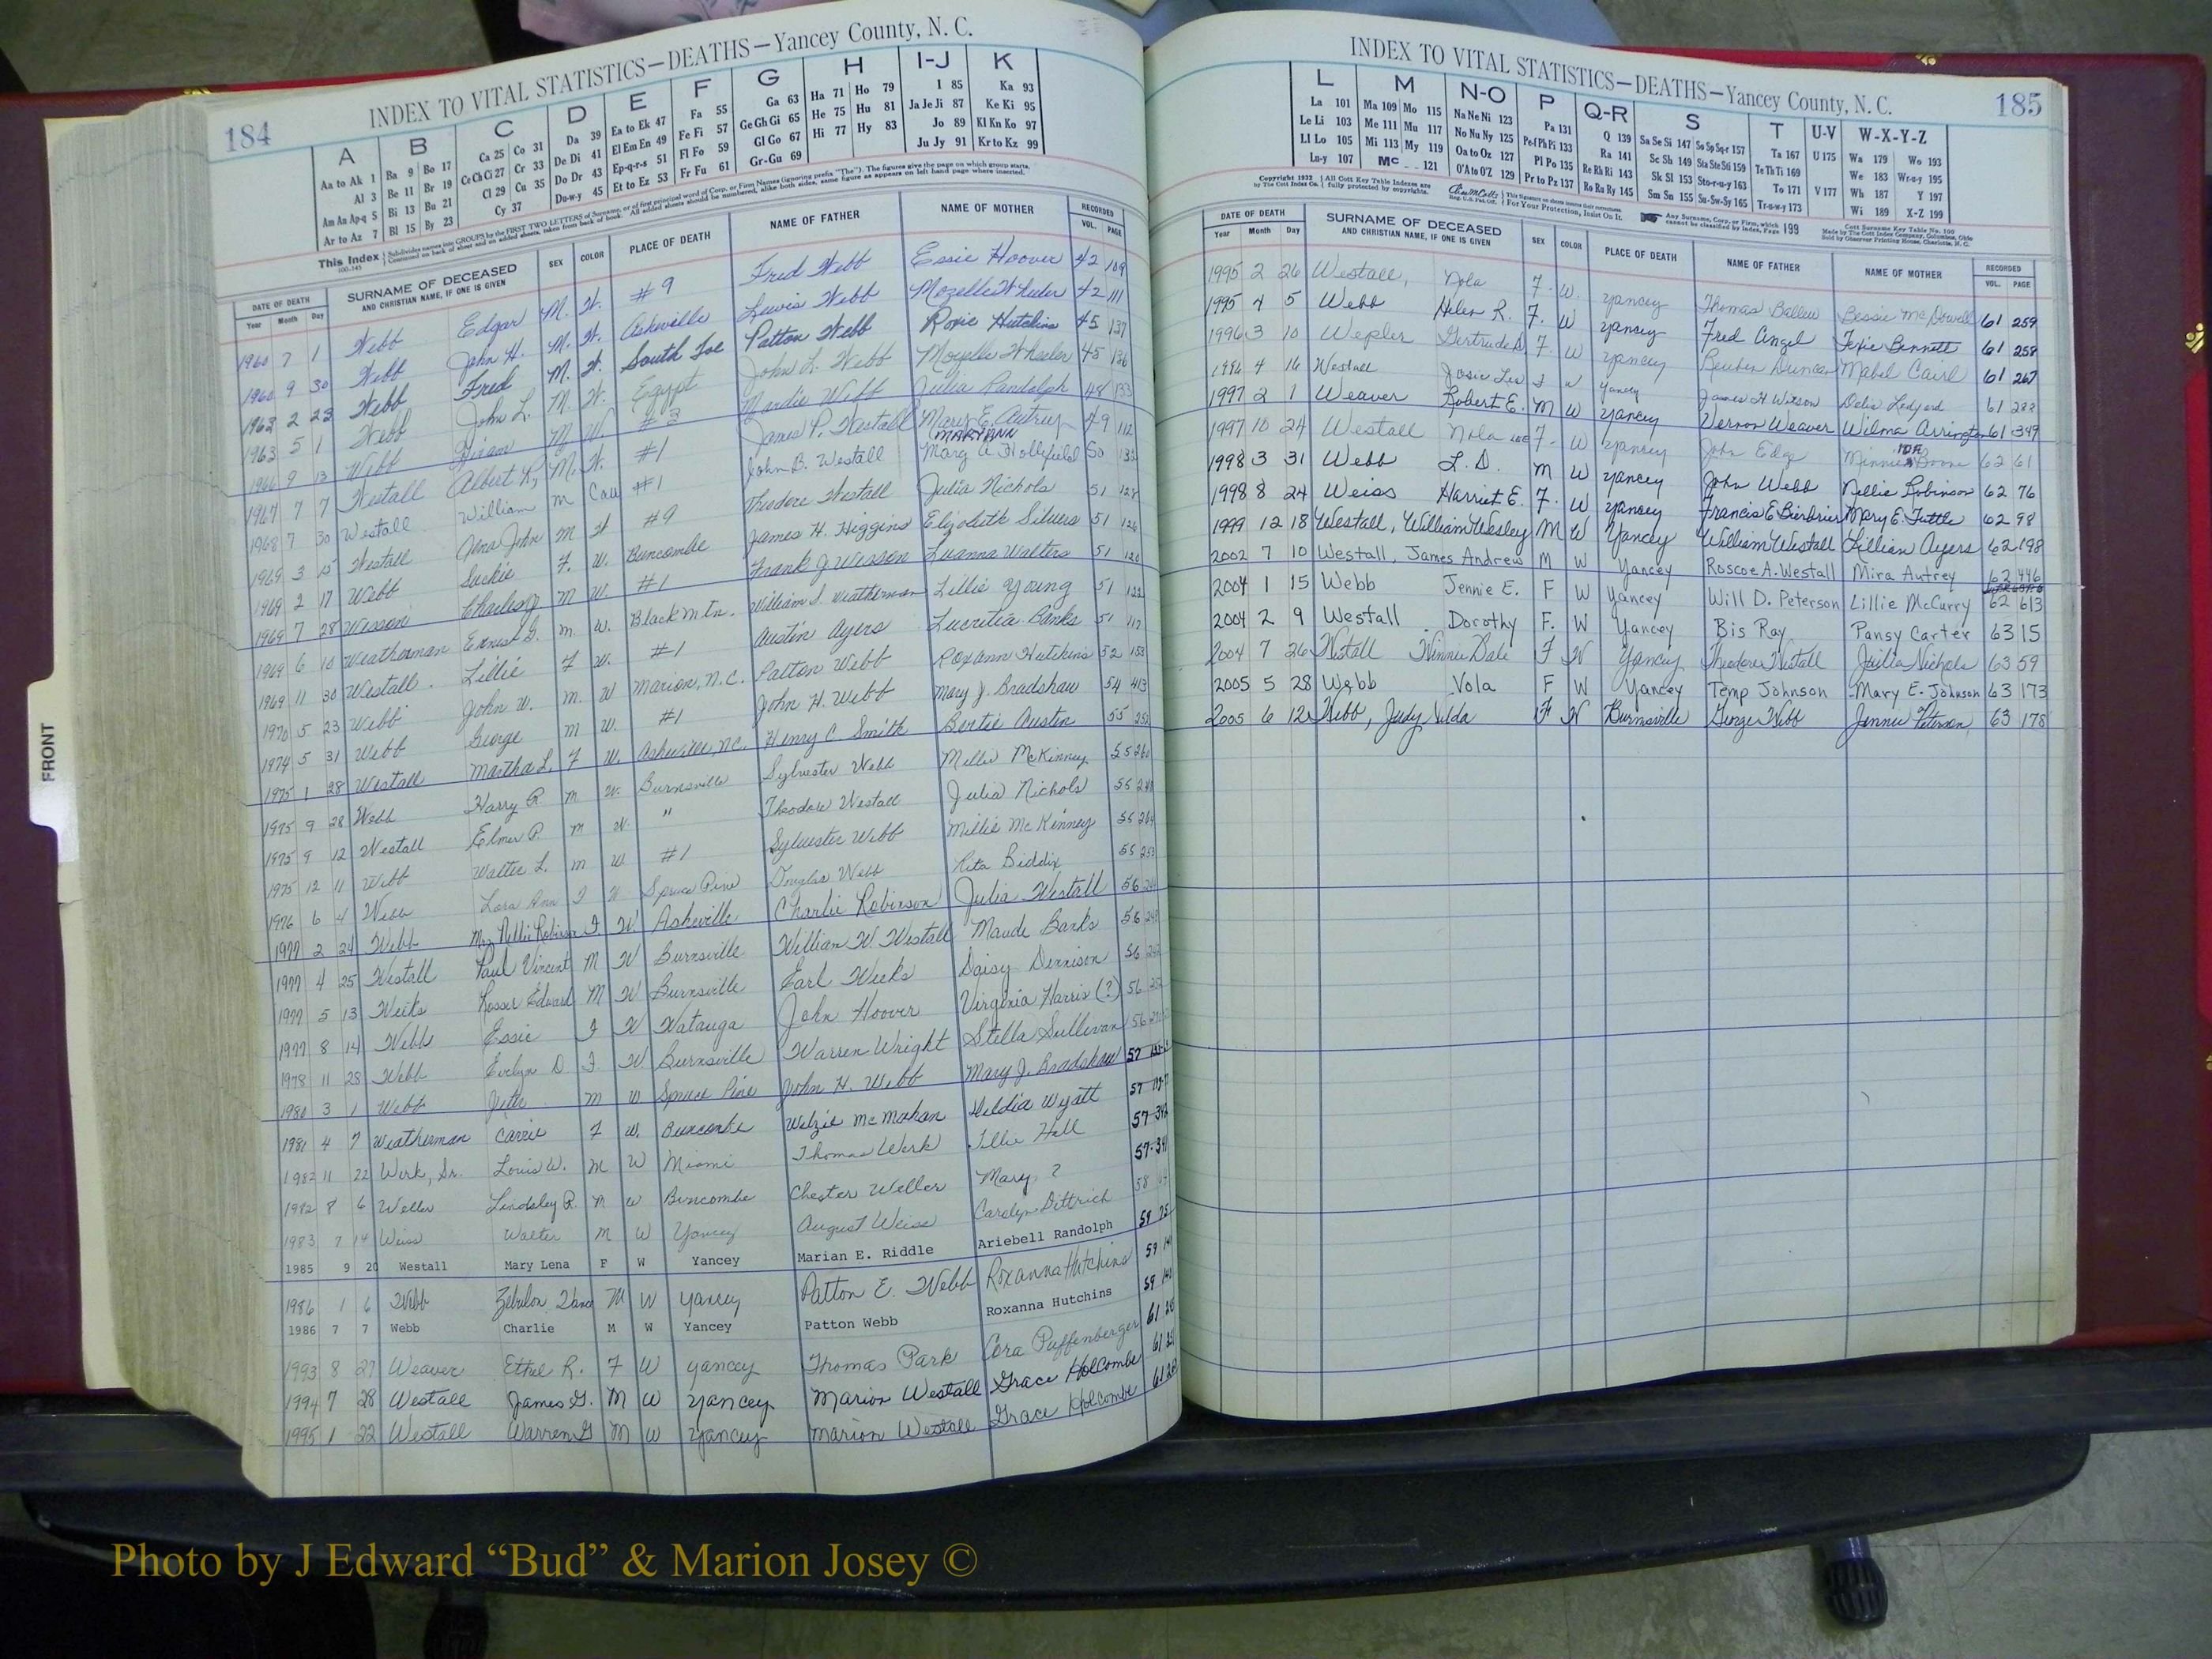 184
INDEX TO VITAL STATISTICS—DEATHS—Yancey County, N. C.
A B C D E F G H I-J K
Aa to Ak 1 Ba 9 Bo 17 Ca 25 Co 31 Da 39 Ea to Ek 47 Fa 55 Ga 63 Ha 71 Ho 79 I 85 Ka 93
Al 3 Be 11 Br 19 Ce Ch Ci 27 Cr 33 De Di 41 El Em En 49 Fe Fi 57 Ge Gh Gi 65 He 75 Hu 81 Ja Je Ji 87 Ke Ki 95
Am An Ap-q 5 Bi 13 Bu 21 Cl 29 Cu 35 Do Dr 43 Ep-q-r-s 51 Fl Fo 59 Gl Go 67 Hi 77 Hy 83 Jo 89 Kl Kn Ko 97
Ar to Az 7 Bl 15 By 23 Cy 37 Du-w-y 45 Et to Ez 53 Fr Fu 61 Gr-Gu 69 Ju Jy 91 Kr to Kz 99
This Index
DATE OF DEATH SURNAME OF DECEASED SEX COLOR PLACE OF DEATH NAME OF FATHER NAME OF MOTHER RECORDED
Year Month Day AND CHRISTIAN NAME, IF ONE IS GIVEN VOL. PAGE
1960 7 1 Webb Edgar M. W. #9 Fred Webb Essie Hoover 42 109
1960 9 30 Webb John H. M. W. Asheville Lewis Webb Mozelle Wheeler 42 111
1963 2 23 Webb Fred M. W. South Toe Patton Webb Roxie Hutchins 45 137
1963 5 1 Webb John L. M. W. Egypt John L. Webb Mozelle Wheeler 45 136
1966 9 13 Webb Hiram M W. #3 Mardie Webb Julia Randolph 48 133
1967 7 7 Westall Albert R, M. W. #1 James P. Westall Mary E. Autrey 49 112
1968 7 30 Westall William M Cau #1 John B. Westall MARY ANN Mary A Hollifield 50 132
1969 3 15 Westall John M W #9 Theodore Westall Julia Nichols 51 128
1969 2 17 Webb Suckie F. W. Buncombe James H. Higgins Elizabeth Silvers 51 126
1969 7 28 Wesson Charles M W. #1 Frank J Wesson Luanna Walters 51 120
1969 6 10 Weatherman Ernest G. M. W. Black Mtn. William S. Weatherman Lillie Young 51 122
1969 11 30 Westall Lillie F W. #1 Austin Ayers Lucretia Banks 51 112
1970 5 23 Webb John W. M. W Marion, N.C. Patton Webb Roxann Hutchins 52 153
1974 5 31 Webb George M W. #1 John H. Webb Mary J. Bradshaw 54 413
1975 1 28 Westall Martha L. F W. Asheville, NC. Henry C Smith Bertie Austin 55 252
1975 9 28 Webb Harry R. M W. Burnsville Sylvester Webb Millie McKinney 55 260
1975 9 12 Westall Elmer P. M W. " Theodore Westall Julia Nichols 55
1975 12 11 Webb Walter L. M W. #1 Sylvester Webb Millie McKinney 55 264
1976 6 4 Webb Lora Ann F W Spruce Pine Douglas Webb Rita Biddix 55 253
1977 2 24 Webb Mrs Nellie Robinson F. W. Asheville Charlie Robinson Julia Westall 56
1977 4 25 Westall Paul Vincent M W Burnsville William W. Westall Maude Banks 56
1977 5 13 Weeks Rosser Edward M W Burnsville Earl Weeks Daisy Dennison 56
1977 8 14 Webb Essie F W Watauga John Hoover Virginia Harris (?) 56
1978 11 28 Webb Evelyn D F W Burnsville Warren Wright Stella Sullivan 56
1980 3 1 Webb Jeter M W Spruce Pine John H. Webb Mary J. Bradshaw 57
1981 4 7 Weatherman Carrie F W. Buncombe Welzie McMahan Heldia Wyatt 57
1982 11 22 Werk, Sr. Louis W. M W Miami Thomas Werk Tillie Hall 57-342
1982 8 6 Weller Lindsley R. M W Buncombe Chester Weller Mary ? 57-341
1983 7 14 Weiss Walter M W Yancey August Weiss Carolyn Dittrich 58
1985 9 20 Westall Mary Lena F W Yancey Marian E. Riddle Ariebell Randolph 59 25
1986 1 6 Webb Zebulon Vance M W Yancey Patton E. Webb Roxanna Hutchins 59 141
1986 7 7 Webb Charlie M W Yancey Patton Webb Roxanna Hutchins 59
1993 8 27 Weaver Ethel R. F W Yancey Thomas Park Cora Puffenberger 61
1994 7 28 Westall James G. M W Yancey Marion Westall Grace Holcombe 61
1995 1 22 Westall Warren G M W Yancey Marion Westall Grace Holcombe 61
FRONT
INDEX TO VITAL STATISTICS—DEATHS—Yancey County, N. C.
185
L M N-O P Q-R S T U-V W-X-Y-Z
La 101 Ma 109 Mo 115 Na Ne Ni 123 Pa 131 Q 139 Sa Se Si 147 So Sp Sq-r 157 Ta 167 U 175 Wa 179 Wo 193
Le Li 103 Me 111 Mu 117 No Nu Ny 125 Pe-f Ph Pi 133 Ra 141 Sc Sh 149 Sta Ste Sti 159 Te Th Ti 169 We 183 Wr-u-y 195
Ll Lo 105 Mi 113 My 119 Oa to Oz 127 Pl Po 135 Re Rh Ri 143 Sk Sl 153 Sto-r-u-y 163 To 171 V 177 Wh 187 Y 197
Lu-y 107 Mc 121 O'A to O'Z 129 Pr to Pz 137 Ro Ru Ry 145 Sm Sn 155 Su-Sw-Sy 165 Tr-u-w-y 173 Wi 189 X-Z 199
DATE OF DEATH SURNAME OF DECEASED SEX COLOR PLACE OF DEATH NAME OF FATHER NAME OF MOTHER RECORDED
Year Month Day AND CHRISTIAN NAME, IF ONE IS GIVEN VOL. PAGE
1995 2 26 Westall, Nola F. W. Yancey Thomas Ballew Bessie McDowell 61 259
1995 4 5 Webb Helen R. F. W Yancey Fred Angel Texie Bennett 61 258
1996 3 10 Wepler Gertrude D F. W Yancey Reuben Duncan Mabel Caird 61 267
1996 4 16 Westall Josie Lee F W Yancey James H Watson Delia Ledford 61 282
1997 2 1 Weaver Robert E. M W Yancey Vernon Weaver Wilma Arrington 61 349
1997 10 24 Westall Nola Lee F. W Yancey John Edge Minnie Boone 62 61
1998 3 31 Webb L. D. M W Yancey John Webb Nellie Robinson 62 76
1998 8 24 Weiss Harriet E. F. W Yancey Francis E Bierbrier Mary E. Tuttle 62 98
1999 12 18 Westall, William Wesley M W Yancey William Westall Lillian Ayers 62 198
2002 7 10 Westall, James Andrew M W Yancey Roscoe A. Westall Mira Autrey 62 446
2004 1 15 Webb Jennie E. F W Yancey Will D. Peterson Lillie McCurry 62 613
2004 2 9 Westall Dorothy F. W Yancey Bis Ray Pansy Carter 63 15
2004 7 26 Westall Winnie Dale F W Yancey Theodore Westall Julia Nichols 63 59
2005 5 28 Webb Vola F W Yancey Temp Johnson Mary E. Johnson 63 173
2005 6 12 Webb, Judy Nilda F W Burnsville George Webb Jennie Peterson 63 178
Photo by J Edward “Bud” & Marion Josey ©